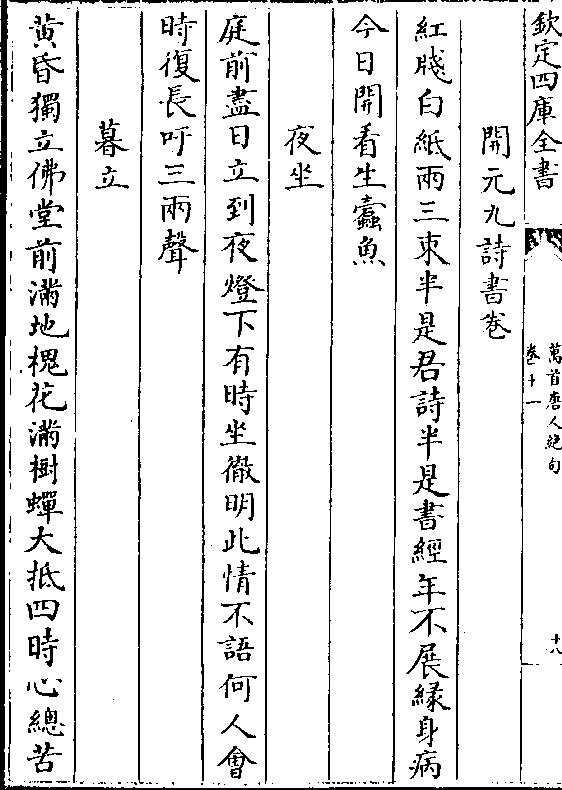 欽定四庫全書
萬首唐人絶句
卷十一
十八
開元九詩書卷
紅牋白紙兩三束半是君詩半是書經年不展緣身病
今日開看生蠹魚
夜坐
庭前盡日立到夜燈下有時坐徹明此情不語何人會
時復長吁三兩聲
暮立
黃昏獨立佛堂前滿地槐花滿樹蟬大抵四時心總苦